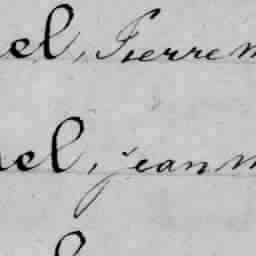 el, Pierre m
el, jean m